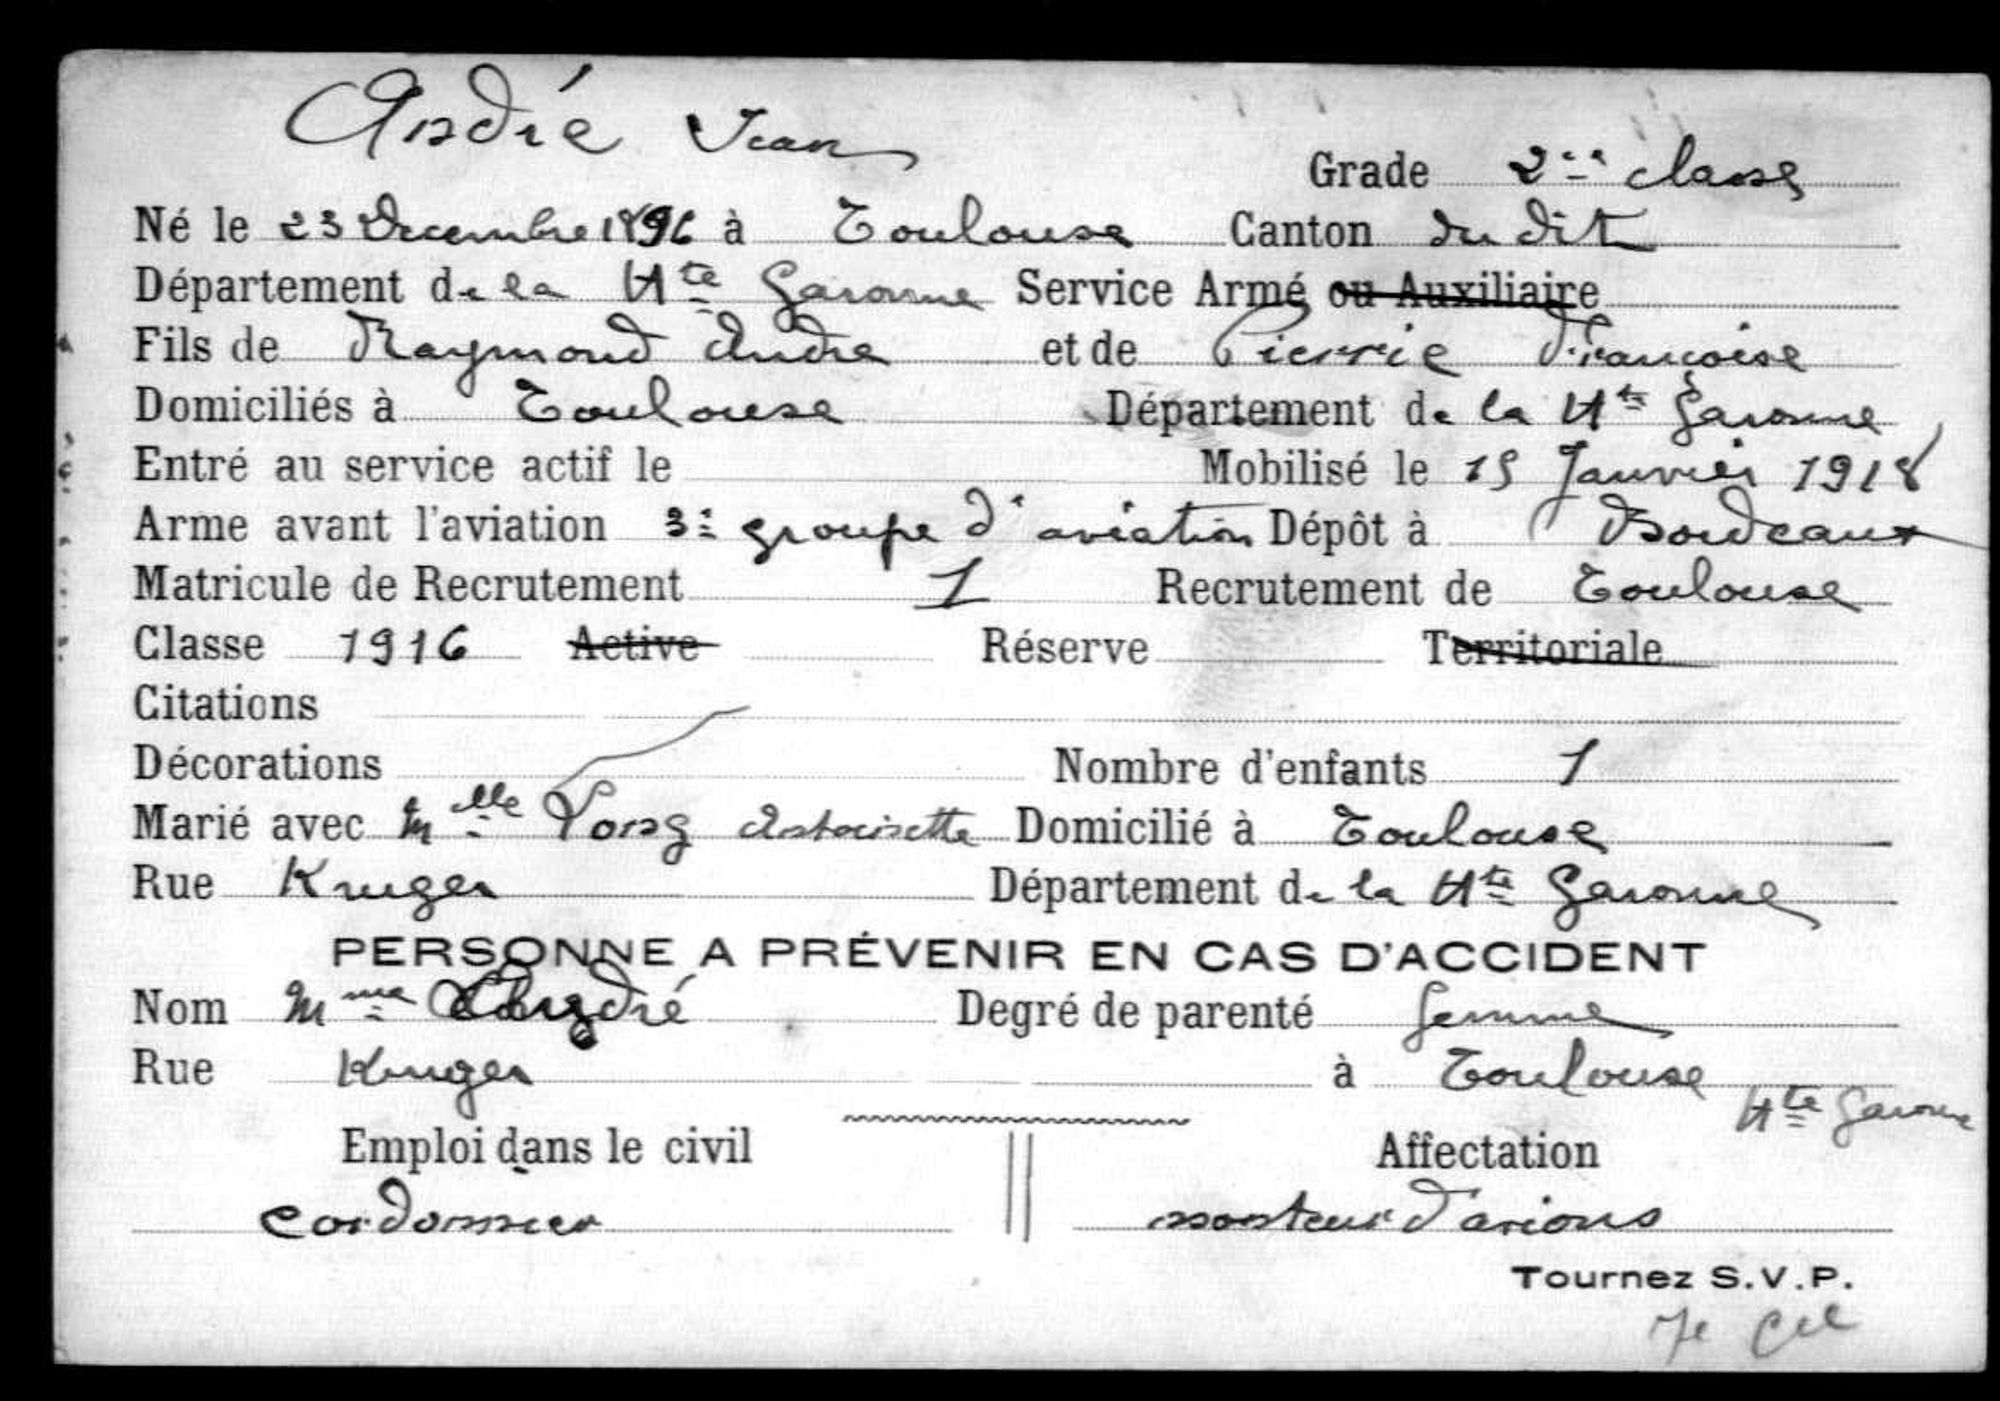 André Jean
Grade 2ème classe
Né le 23 Decembre 1896 à Toulouse Canton du dit
Département de la Hte Garonne Service Armé ou Auxiliaire
Fils de Raymond André et de Pierrie Françoise
Domiciliés à Toulouse Département de la Hte Garonne
Entré au service actif le Mobilisé le 15 Janvier 1918
Arme avant l'aviation 3e groupe d'aviation Dépôt à Bordeaux
Matricule de Recrutement 1 Recrutement de Toulouse
Classe 1916 Active Réserve Territoriale
Citations
Décorations Nombre d'enfants 1
Marié avec Mlle Long Antoinette Domicilié à Toulouse
Rue Kruger Département de la Hte Garonne
PERSONNE A PRÉVENIR EN CAS D'ACCIDENT
Nom Mme André Degré de parenté femme
Rue Kruger à Toulouse
Hte Garonne
Emploi dans le civil Affectation
Cordonnier monteur d'avions
Tournez S.V.P.